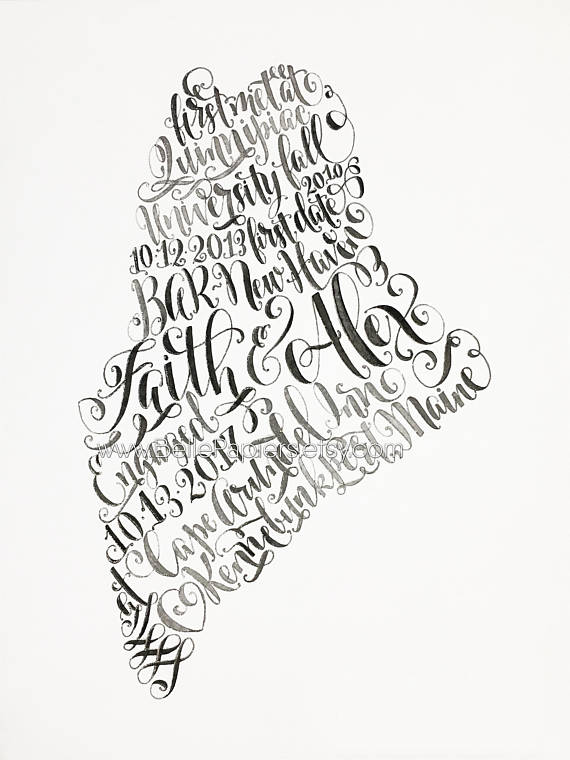 first met at
Quinnipiac
University fall
2010
10·12·2013 first date
BAR~New Haven
Faith & Alex
Engaged
www.BellePapiers.etsy.com
10·13·2017
Cape Arundel Inn
Kennebunkport Maine